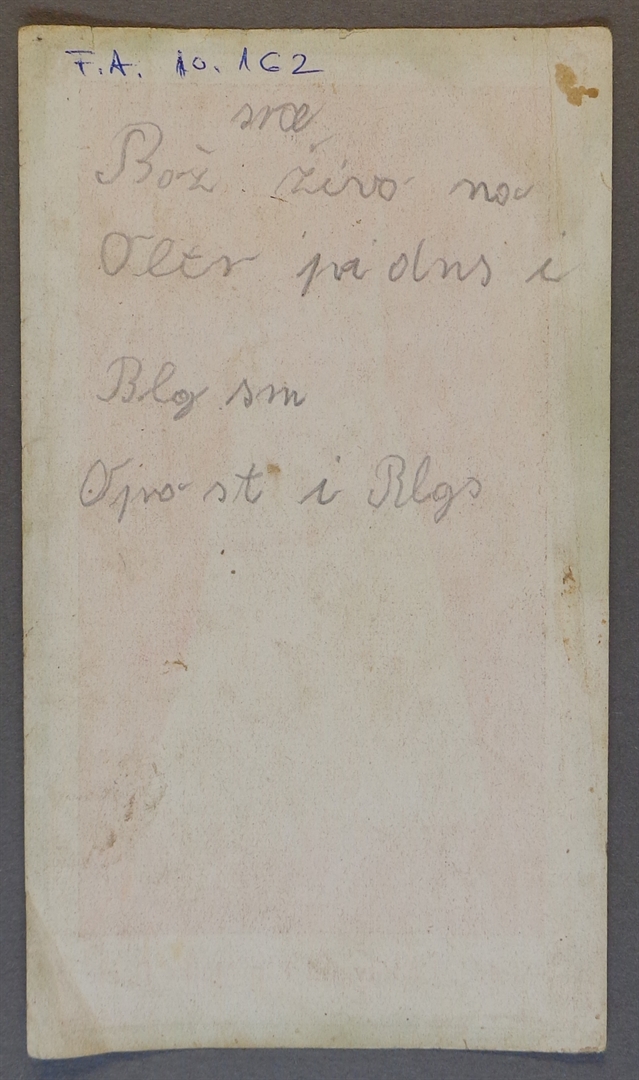 F.A. 10.162
srce
Bož. živo na
Oltr pa dns i
Blg sm
Opo st i Blgs